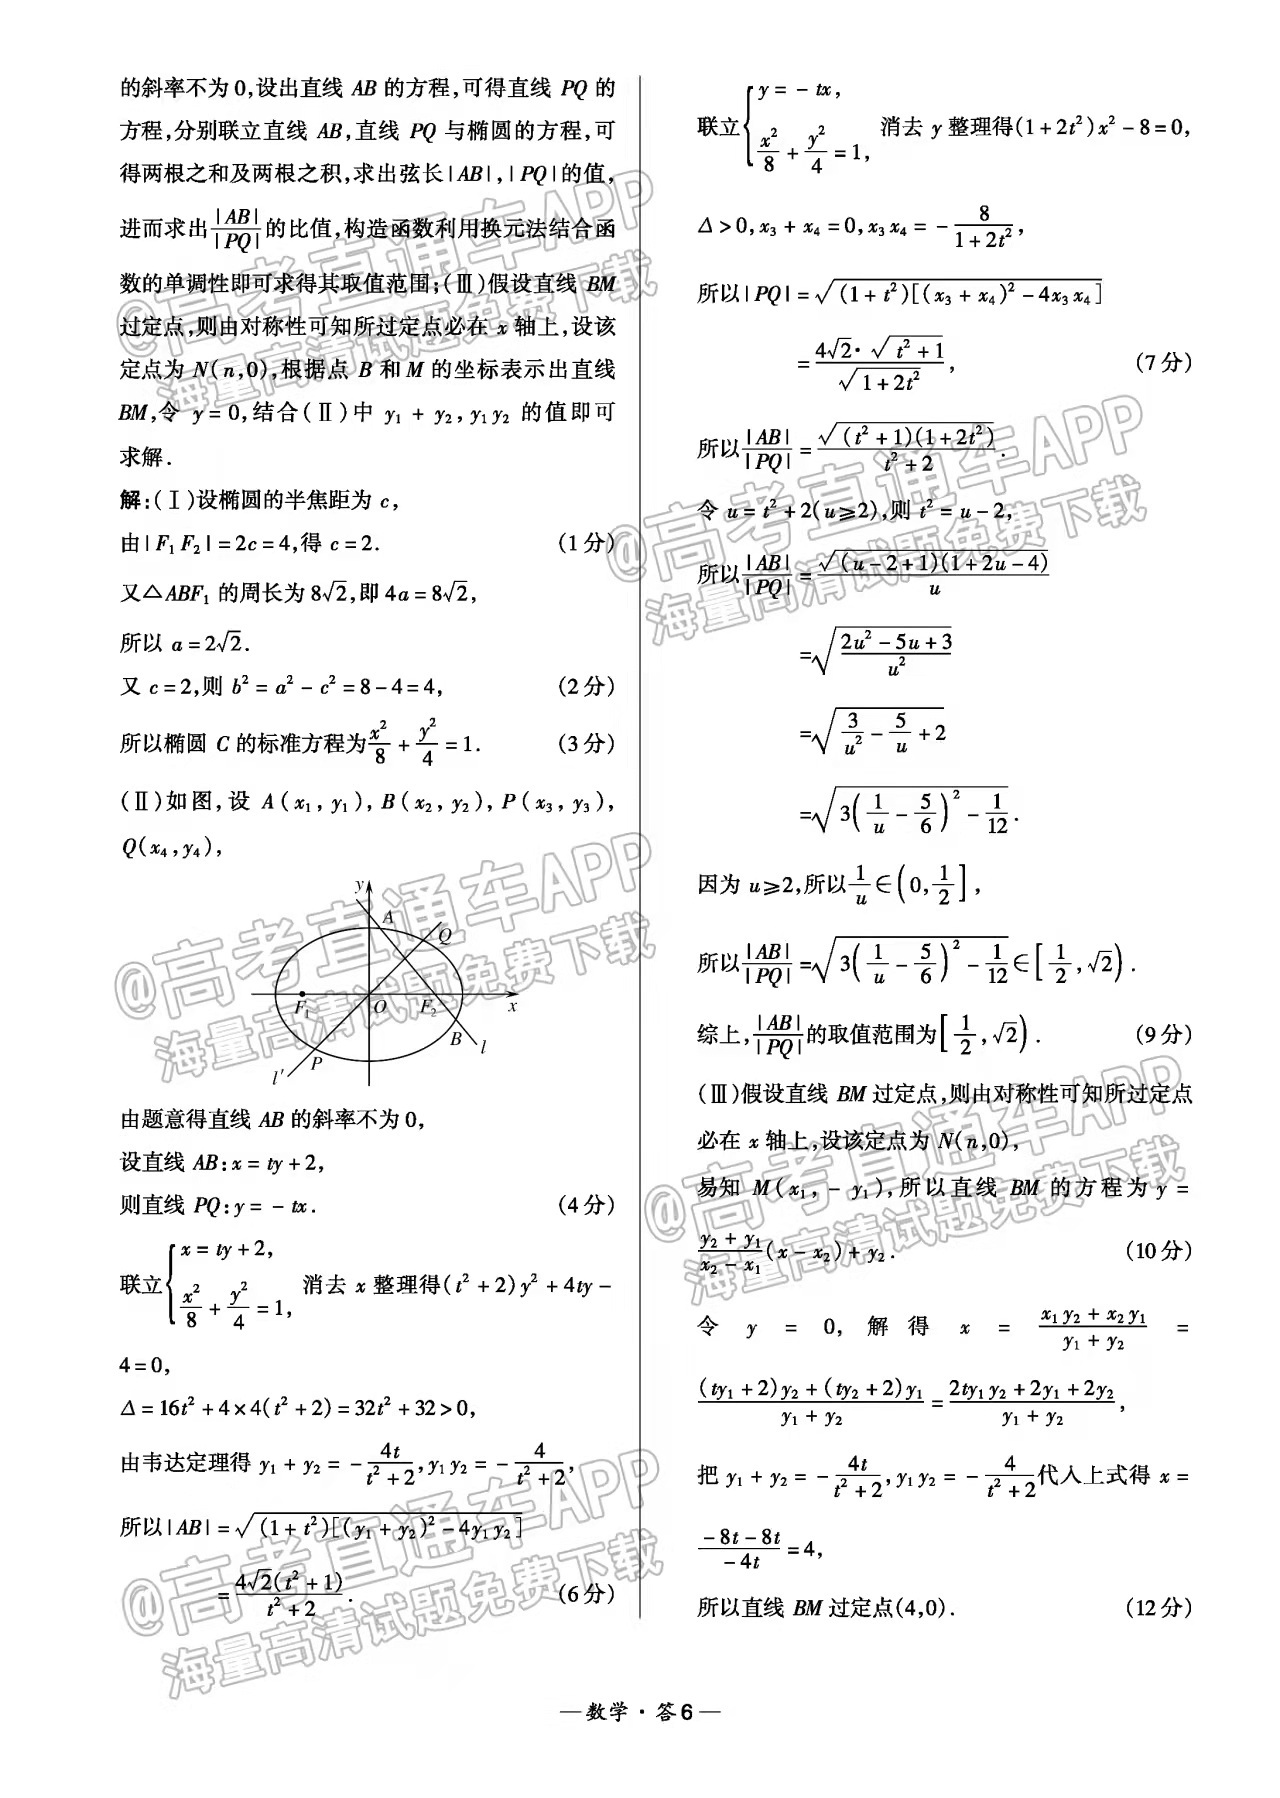 的斜率不为0,设出直线 AB 的方程,可得直线 PQ 的
方程,分别联立直线 AB,直线 PQ 与椭圆的方程,可
得两根之和及两根之积,求出弦长|AB|,|PQ|的值,
进而求出|AB|/|PQ|的比值,构造函数利用换元法结合函
数的单调性即可求得其取值范围;(Ⅲ)假设直线 BM
过定点,则由对称性可知所过定点必在 x 轴上,设该
定点为 N(n,0),根据点 B 和 M 的坐标表示出直线
BM,令 y=0,结合(Ⅱ)中 y₁+y₂,y₁y₂ 的值即可
求解.
解:(Ⅰ)设椭圆的半焦距为 c,
由|F₁F₂|=2c=4,得 c=2. (1分)
又△ABF₁ 的周长为 8√2,即 4a=8√2,
所以 a=2√2.
又 c=2,则 b²=a²-c²=8-4=4, (2分)
所以椭圆 C 的标准方程为x²/8+y²/4=1. (3分)
(Ⅱ)如图,设 A(x₁,y₁),B(x₂,y₂),P(x₃,y₃),
Q(x₄,y₄),
y
A
Q
F₁ O F₂ x
P B l
l′
由题意得直线 AB 的斜率不为 0,
设直线 AB:x=ty+2,
则直线 PQ:y=-tx. (4分)
联立{x=ty+2, x²/8+y²/4=1, 消去 x 整理得(t²+2)y²+4ty-
4=0,
Δ=16t²+4×4(t²+2)=32t²+32>0,
由韦达定理得 y₁+y₂=-4t/(t²+2),y₁y₂=-4/(t²+2),
所以|AB|=√((1+t²)[(y₁+y₂)²-4y₁y₂])
=4√2(t²+1)/(t²+2). (6分)
联立{y=-tx, x²/8+y²/4=1, 消去 y 整理得(1+2t²)x²-8=0,
Δ>0,x₃+x₄=0,x₃x₄=-8/(1+2t²),
所以|PQ|=√((1+t²)[(x₃+x₄)²-4x₃x₄])
=4√2·√(t²+1)/√(1+2t²), (7分)
所以|AB|/|PQ|=√((t²+1)(1+2t²))/(t²+2).
令 u=t²+2(u≥2),则 t²=u-2,
所以|AB|/|PQ|=√((u-2+1)(1+2u-4))/u
=√((2u²-5u+3)/u²)
=√(3/u²-5/u+2)
=√(3(1/u-5/6)²-1/12).
因为 u≥2,所以1/u∈(0,1/2],
所以|AB|/|PQ|=√(3(1/u-5/6)²-1/12)∈[1/2,√2).
综上,|AB|/|PQ|的取值范围为[1/2,√2). (9分)
(Ⅲ)假设直线 BM 过定点,则由对称性可知所过定点
必在 x 轴上,设该定点为 N(n,0),
易知 M(x₁,-y₁),所以直线 BM 的方程为 y=
(y₂+y₁)/(x₂-x₁)(x-x₂)+y₂. (10分)
令 y=0,解得 x=(x₁y₂+x₂y₁)/(y₁+y₂)=
((ty₁+2)y₂+(ty₂+2)y₁)/(y₁+y₂)=(2ty₁y₂+2y₁+2y₂)/(y₁+y₂),
把 y₁+y₂=-4t/(t²+2),y₁y₂=-4/(t²+2)代入上式得 x=
(-8t-8t)/(-4t)=4,
所以直线 BM 过定点(4,0). (12分)
—数学·答6—
@高考直通车APP
海量高清试题免费下载
@高考直通车APP
海量高清试题免费下载
@高考直通车APP
海量高清试题免费下载
@高考直通车APP
海量高清试题免费下载
@高考直通车APP
海量高清试题免费下载